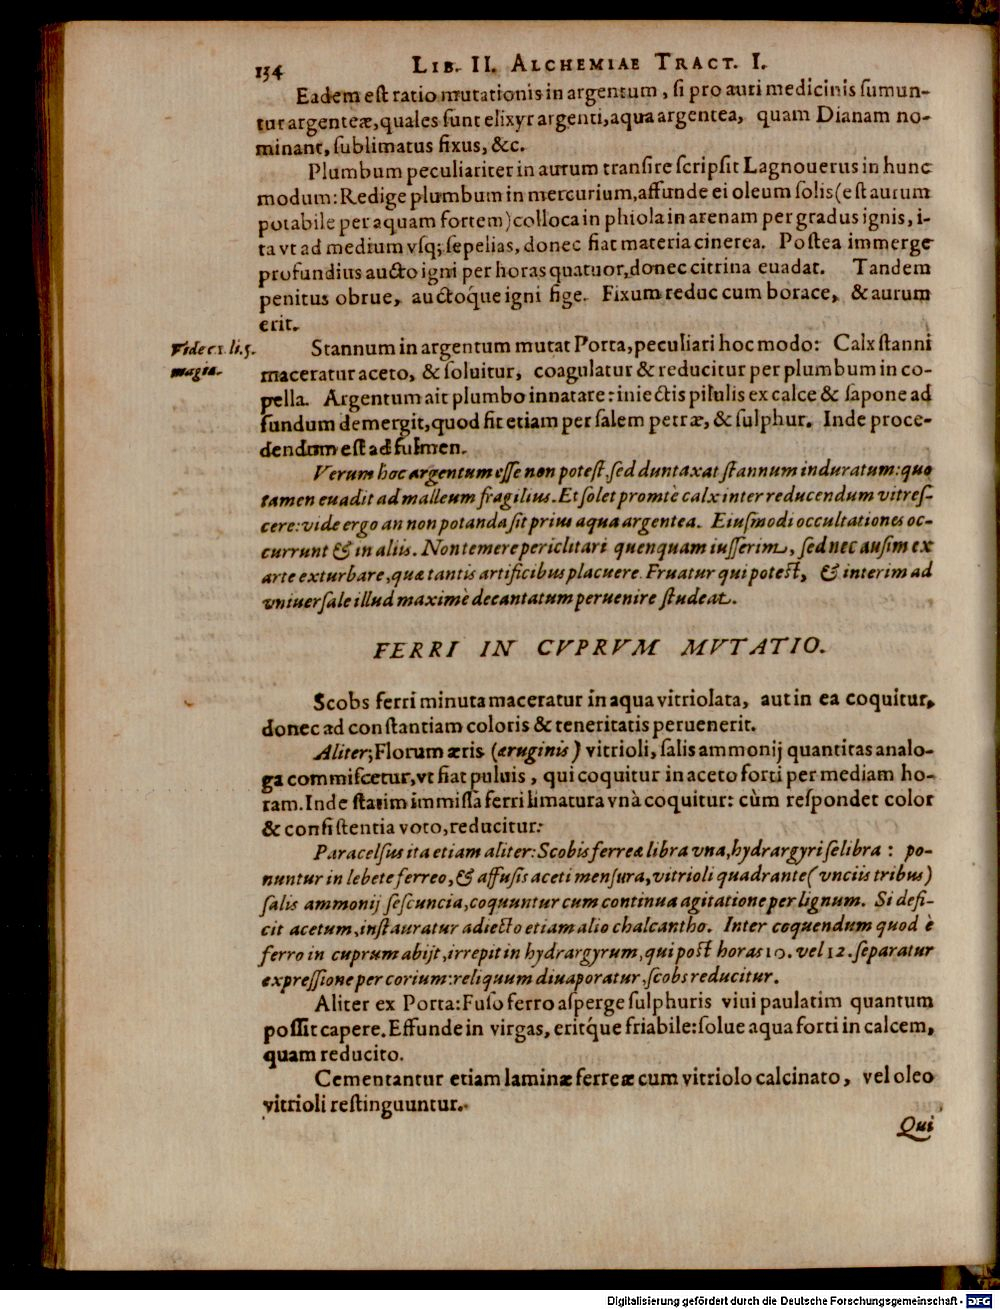 134 LIB. II. ALCHEMIAE TRACT. I.
Eadem est ratio mutationis in argentum, si pro auri medicinis sumun-
tur argenteæ, quales sunt elixyr argenti, aqua argentea, quam Dianam no-
minant, sublimatus fixus, &c.
Plumbum peculiariter in aurum transire scripsit Lagnouerus in hunc
modum: Redige plumbum in mercurium, affunde ei oleum solis (est aurum
potabile per aquam fortem) colloca in phiola in arenam per gradus ignis, i-
ta vt ad medium vsq; sepelias, donec fiat materia cinerea. Postea immerge
profundius aucto igni per horas quatuor, donec citrina euadat. Tandem
penitus obrue, auctoq́ue igni fige. Fixum reduc cum borace, & aurum
erit.
Vide c 1. li. 5.
magiæ.
Stannum in argentum mutat Porta, peculiari hoc modo: Calx stanni
maceratur aceto, & soluitur, coagulatur & reducitur per plumbum in co-
pella. Argentum ait plumbo innatare: iniectis pilulis ex calce & sapone ad
fundum demergit, quod fit etiam per salem petræ, & sulphur. Inde proce-
dendum est ad fulmen.
Verum hoc argentum esse non potest, sed duntaxat stannum induratum: quo
tamen euadit ad malleum fragilius. Et solet promtè calx inter reducendum vitres-
cere: vide ergo an non potanda sit prius aqua argentea. Eiusmodi occultationes oc-
currunt & in aliis. Non temere periclitari quenquam iusserim, sed nec ausim ex
arte exturbare, quæ tantis artificibus placuere. Fruatur qui potest, & interim ad
vniuersale illud maximè decantatum peruenire studeat.
FERRI IN CVPRVM MVTATIO.
Scobs ferri minuta maceratur in aqua vitriolata, aut in ea coquitur,
donec ad constantiam coloris & teneritatis peruenerit.
Aliter; Florum æris (æruginis) vitrioli, salis ammonij quantitas analo-
ga commiscetur, vt fiat puluis, qui coquitur in aceto forti per mediam ho-
ram. Inde statim immissa ferri limatura vnà coquitur: cùm respondet color
& consistentia voto, reducitur:
Paracelsus ita etiam aliter: Scobis ferreæ libra vna, hydrargyri selibra: po-
nuntur in lebete ferreo, & affusis aceti mensura, vitrioli quadrante (vnciis tribus)
salis ammonij sescuncia, coquuntur cum continua agitatione per lignum. Si defi-
cit acetum, instauratur adiecto etiam alio chalcantho. Inter coquendum quod è
ferro in cuprum abijt, irrepit in hydrargyrum, qui post horas 10. vel 12. separatur
expressione per corium: reliquum diuaporatur, scobs reducitur.
Aliter ex Porta: Fuso ferro asperge sulphuris viui paulatim quantum
possit capere. Effunde in virgas, eritq́ue friabile: solue aqua forti in calcem,
quam reducito.
Cementantur etiam laminæ ferreæ cum vitriolo calcinato, vel oleo
vitrioli restinguuntur.
Qui
Digitalisierung gefördert durch die Deutsche Forschungsgemeinschaft - DFG